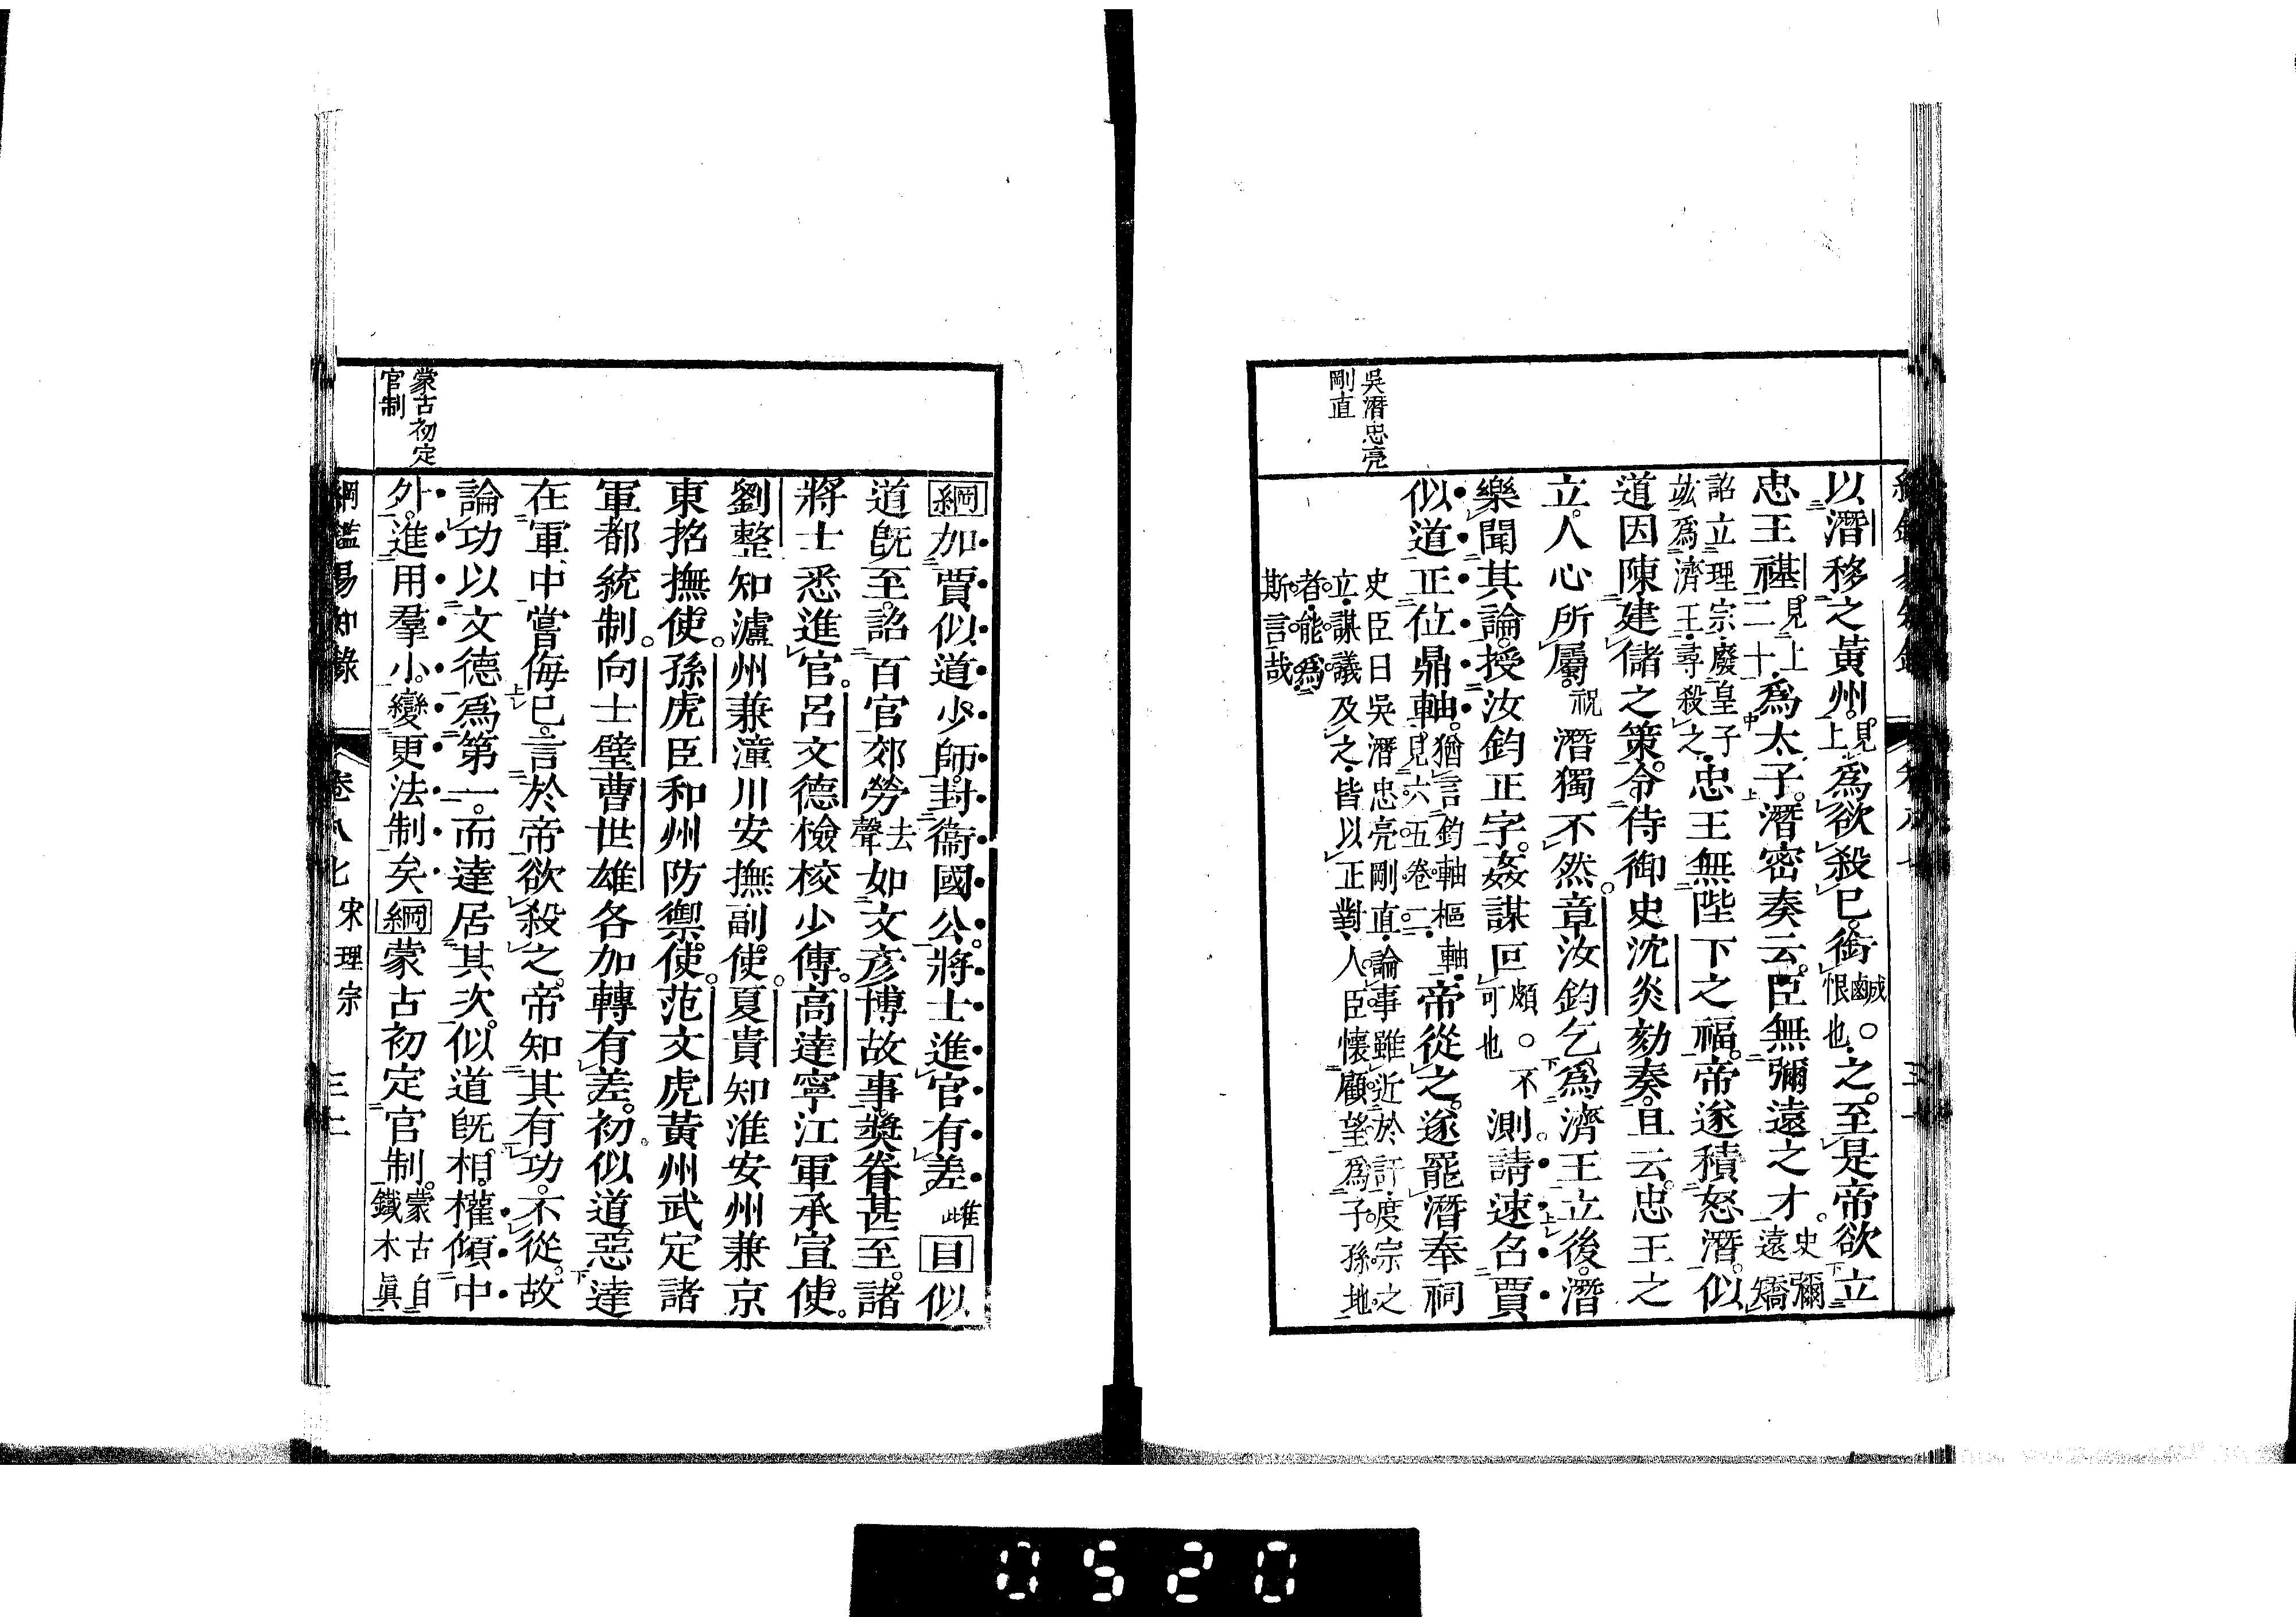 吳潛忠亮
剛直
以潛移之黃州見上爲欲殺已銜鹹恨也之至是帝欲立
忠王禥見上二十爲太子潛密奏云臣無彌遠之才史彌遠矯
詔立理宗廢皇子竑爲濟王尋殺之忠王無陛下之福帝遂積怒潛似
道因陳建儲之策令侍御史沈炎劾奏且云忠王之
立人心所屬祝潛獨不然章汝鈞乞爲濟王立後潛
樂聞其論授汝鈞正字姦謀叵頗不可也測請速召賈
似道正位鼎軸猶言鈞軸樞軸見六五卷二帝從之遂罷潛奉祠
史臣曰吳潛忠亮剛直論事雖近於訐度宗之
立謀議及之皆以正對人臣懷顧望爲子孫地
者能爲
斯言哉
綱加賈似道少師封衞國公將士進官有差雌目似
道旣至詔百官郊勞去聲如文彥博故事獎眷甚至諸
將士悉進官呂文德檢校少傅高達寧江軍承宣使
劉整知瀘州兼潼川安撫副使夏貴知淮安州兼京
東招撫使孫虎臣和州防禦使范文虎黃州武定諸
軍都統制向士璧曹世雄各加轉有差初似道惡達
在軍中嘗侮已言於帝欲殺之帝知其有功不從故
論功以文德爲第一而達居其次似道旣相權傾中
外進用羣小變更法制矣綱蒙古初定官制蒙古自鐵木眞
蒙古初定
官制
綱鑑易知錄 卷八七 宋理宗
0520